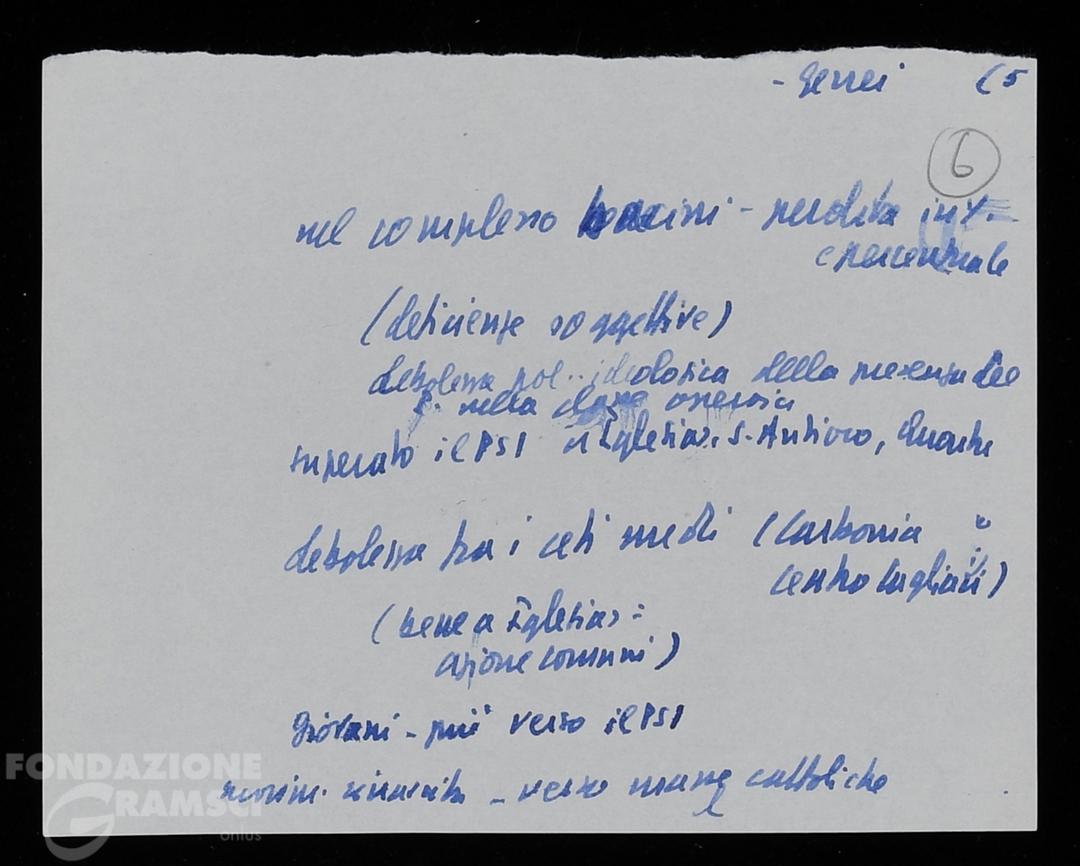 - Gerrei (5
6
nel complesso bacini - perdita in V.
e percentuale
(deficienze soggettive)
debolezza pol. ideologica della presenza del
P. nella classe operaia
superato il PSI a Iglesias. S. Antioco,
debolezza tra i ceti medi (Carbonia e
centro Cagliari)
(bene a Iglesias:
azione comuni)
Giovani - più verso il PSI
rinascita - verso masse cattoliche
FONDAZIONE
GRAMSCI
onlus